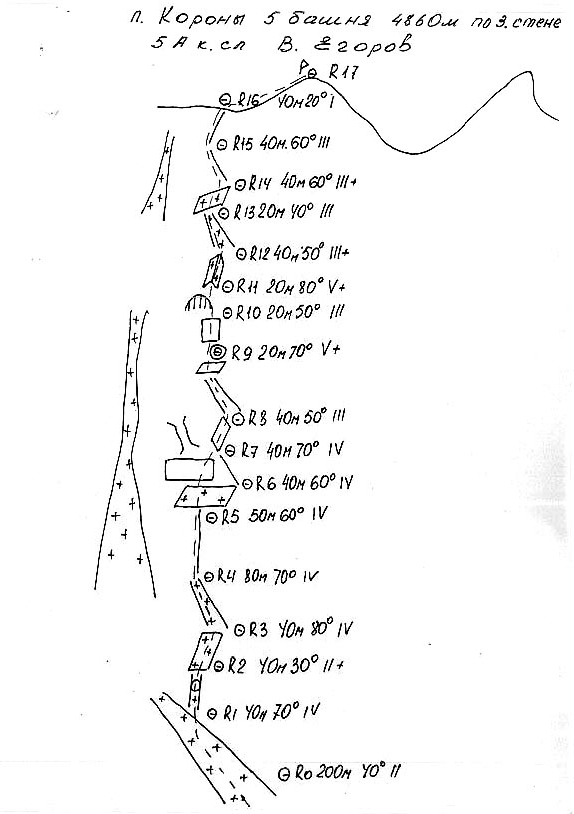 п. Короны 5 башня 4860м по З. стене
5А к.сл В. Егоров
R17
R16 40м 20° I
R15 40м. 60° III
R14 40м 60° III+
R13 20м 40° III
R12 40м 50° III+
R11 20м 80° V+
R10 20м 50° III
R9 20м 70° V+
R8 40м 50° III
R7 40м 70° IV
R6 40м 60° IV
R5 50м 60° IV
R4 80м 70° IV
R3 40м 80° IV
R2 40м 30° II+
R1 40м 70° IV
R0 200м 40° II